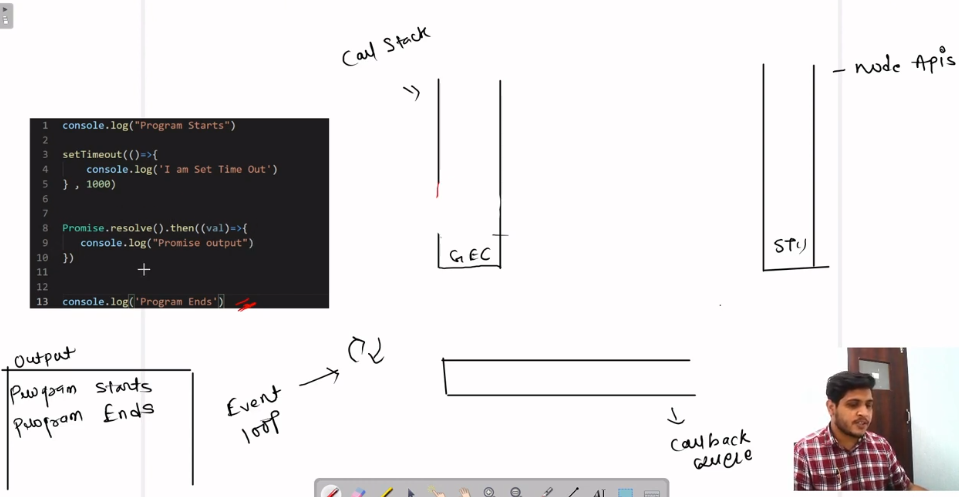 Call Stack
Node Apis
1 console.log("Program Starts")
2
3 setTimeout(()=>{
4 console.log('I am Set Time Out')
5 } , 1000)
6
7
8 Promise.resolve().then((val)=>{
9 console.log("Promise output")
10 })
11
12
13 console.log('Program Ends')
GEC
Output
Program Starts
Program Ends
Event
loop
Callback
Queue